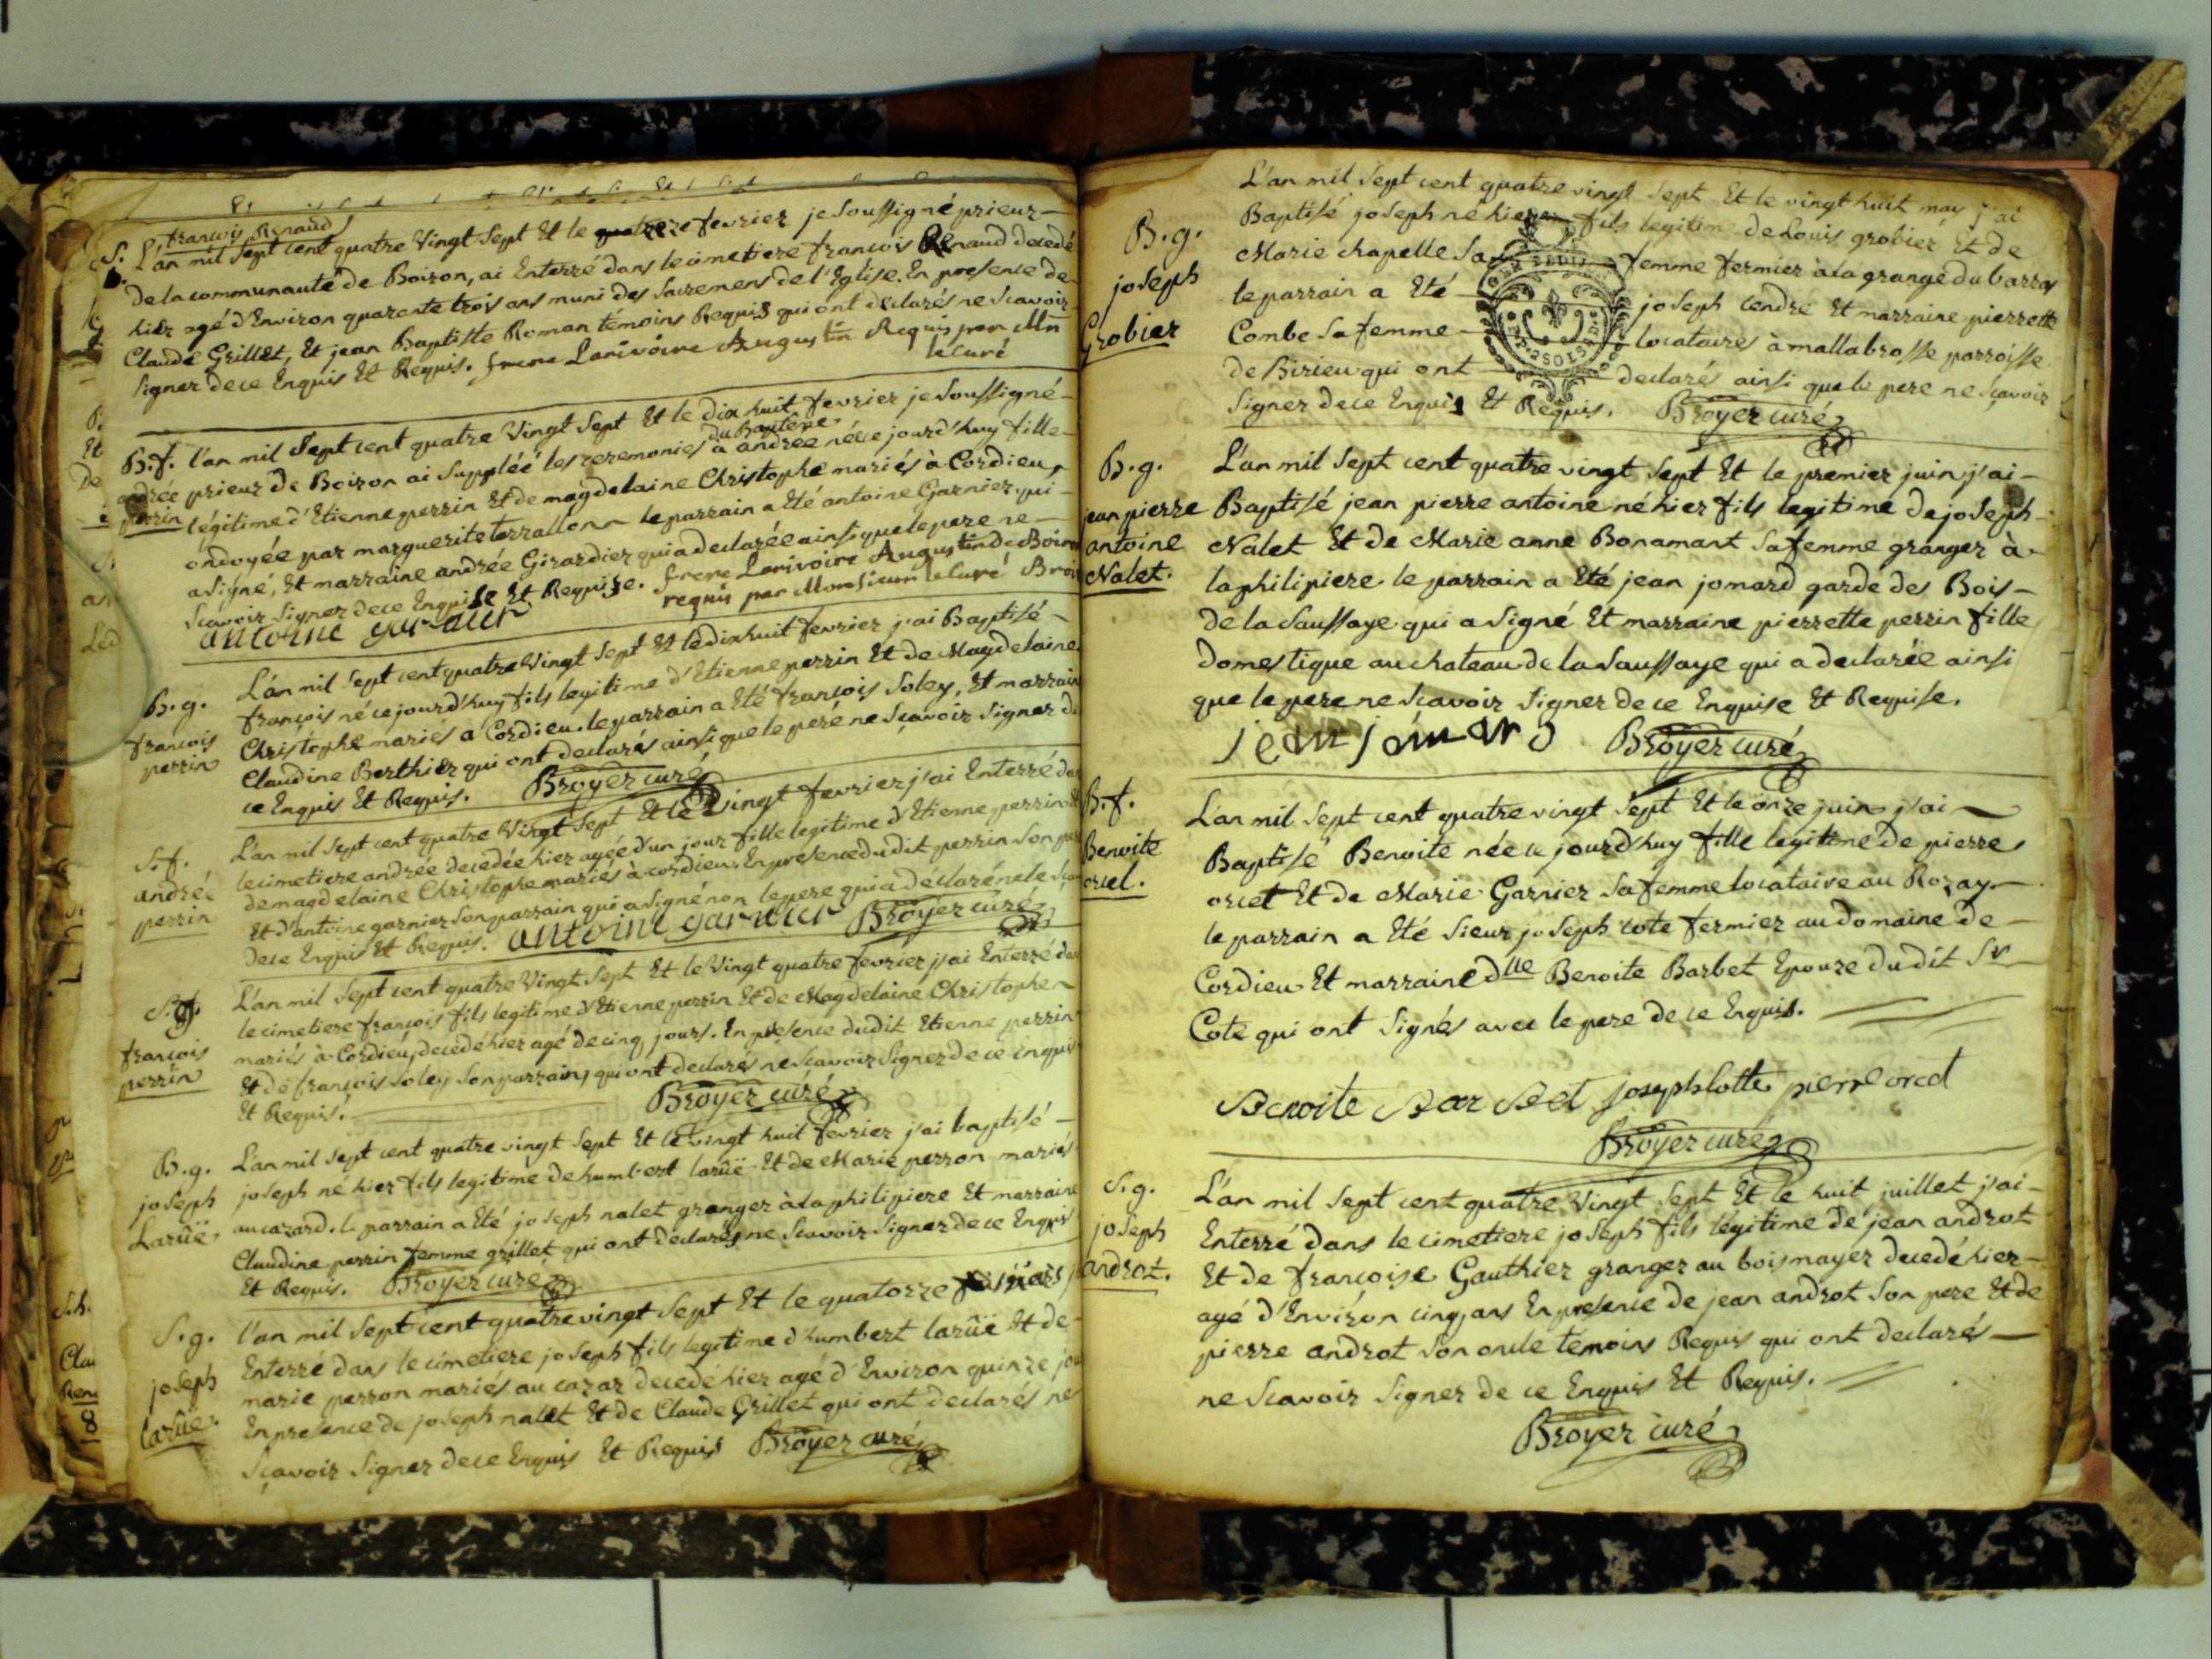 françois Renaud
S. L'an mil Sept cent quatre Vingt Sept Et le quatorze fevrier je Soussigné prieur
De la communauté de Boizon, ai Enterré dans le cimetiere françois Renaud decedé
hier agé d'Environ quarente trois ans muni des Sacremens de l'Eglise. En presence de
Claude Grillet, Et jean Baptiste Roman témoins Requis qui ont declarés ne Scavoir
Signer de ce Enquis Et Requis. frere Larivoire Augustin Requis par Mr
le Curé
B.f. l'an mil Sept cent quatre Vingt Sept Et le dix huit fevrier je Soussigné
du Baptême
andrée prieur de Boizon ai Suppléé les ceremonies à andrée née ce jourd'huy fille
perrin légitime d'Etienne perrin Et de magdelaine Christophe mariés à Cordieu,
ondoyée par marguerite terrallon le parrain a Eté antoine Garnier qui
a Signé, Et marraine andrée Girardier qui a declarée ainsi que le pere ne
Scavoir Signer de ce Enquise Et Requise. frere Larivoire Augustin de
antoine garnier requis par Monsieur le Curé
L'an mil Sept cent quatre Vingt Sept Et le dix huit fevrier j'ai Baptisé
B.g. françois né ce jourd'huy fils legitime d'Etienne perrin Et de Magdelaine
françois Christophe mariés a Cordieu. le parrain a Eté françois Soley, Et marraine
perrin Claudine Berthier qui ont declarés ainsi que le peré ne Scavoir Signer de
ce Enquis Et Requis. Broyer curé
L'an mil Sept cent quatre Vingt Sept Et le Vingt fevrier j'ai Enterré dans
S.f. le cimetiere andrée decedée hier agée d'un jour fille legitime d'Etienne perrin Et
andrée de magdelaine Christophe mariés à cordieu. En presence dudit perrin Son pere
perrin Et d'antoine garnier Son parrain qui a Signé non le pere qui a déclaré ne le
de ce Enquis Et Requis. antoine garnier Broyer curé
L'an mil Sept cent quatre Vingt Sept Et le Vingt quatre fevrier j'ai Enterré dans
S.g. le cimetiere françois fils legitime d'Etienne perrin Et de Magdelaine Christophe
françois mariés à Cordieu, decedé hier agé de cinq jours. En presence dudit Etienne perrin
perrin Et de françois Soley Son parrain, qui ont declarés ne Scavoir Signer de ce enquis
Et Requis. Broyer curé
B.g. L'an mil sept cent quatre vingt Sept Et le vingt huit fevrier j'ai baptisé
joseph joseph né hier fils legitime de humbert larüe Et de Marie perron mariés
Larüe, au cazard. le parrain a Eté joseph nalet granger à la philipiere Et marraine
Claudine perrin femme grillet qui ont declarés ne Scavoir Signer de ce Enquis
Et Requis. Broyer curé
S.g. l'an mil Sept cent quatre vingt Sept Et le quatorze mars
joseph Enterré dans le cimetiere joseph fils legitime d'humbert larüe Et de
larüe. marie perron mariés au cazar decedé hier agé d'Environ quinze
En presence de joseph nalet Et de Claude Grillet qui ont declarés ne
Scavoir Signer de ce Enquis Et Requis Broyer curé
L'an mil Sept cent quatre vingt Sept Et le vingt huit may j'ai
B.g. Baptisé joseph né hier fils legitim de Louis grobier Et de
joseph Marie chapelle Sa femme fermier à la grange du barray
Grobier le parrain a Eté joseph cendre Et marraine pierrette
Combe Sa femme locataires à mallabrosse parroisse
de Birieu qui ont declarés ainsi que le pere ne Scavoir
Signer de ce Enquis Et Requis. Broyer curé
B.g. L'an mil Sept cent quatre vingt Sept Et le premier juin j'ai
jean pierre Baptisé jean pierre antoine né hier fils legitime de joseph
antoine Nalet Et de Marie anne Bonamant Sa femme granger à
Nalet. la philipiere. le parrain a Eté jean jomard garde des Bois
de la Saussaye qui a Signé Et marraine pierrette perrin fille
domestique au chateau de la Saussaye qui a declarée ainsi
que le pere ne Scavoir Signer de ce Enquise Et Requise.
jean jomard Broyer curé
B.f. L'an mil Sept cent quatre vingt Sept Et le onze juin j'ai
Benoite Baptisé Benoite née ce jourd'huy fille legitime de pierre
orcel. orcet Et de Marie Garnier Sa femme locataire au Rozay
le parrain a Eté Sieur joseph cote fermier au domaine de
Cordieu Et marraine dlle Benoite Barbet Epouze dudit Sr
Cote qui ont Signés avec le pere de ce Enquis.
Benoite Barbet joseph Cotte pierre orcel
Broyer curé
S.g. L'an mil Sept cent quatre Vingt Sept Et le huit juillet j'ai
joseph Enterré dans le cimetiere joseph fils légitime de jean androt
androt. Et de françoise Gauthier granger au bois mayer decedé hier
agé d'Environ cinq ans En presence de jean androt Son pere Et de
pierre androt Son oncle temoins Requis qui ont declarés
ne Scavoir Signer de ce Enquis Et Requis.
Broyer curé